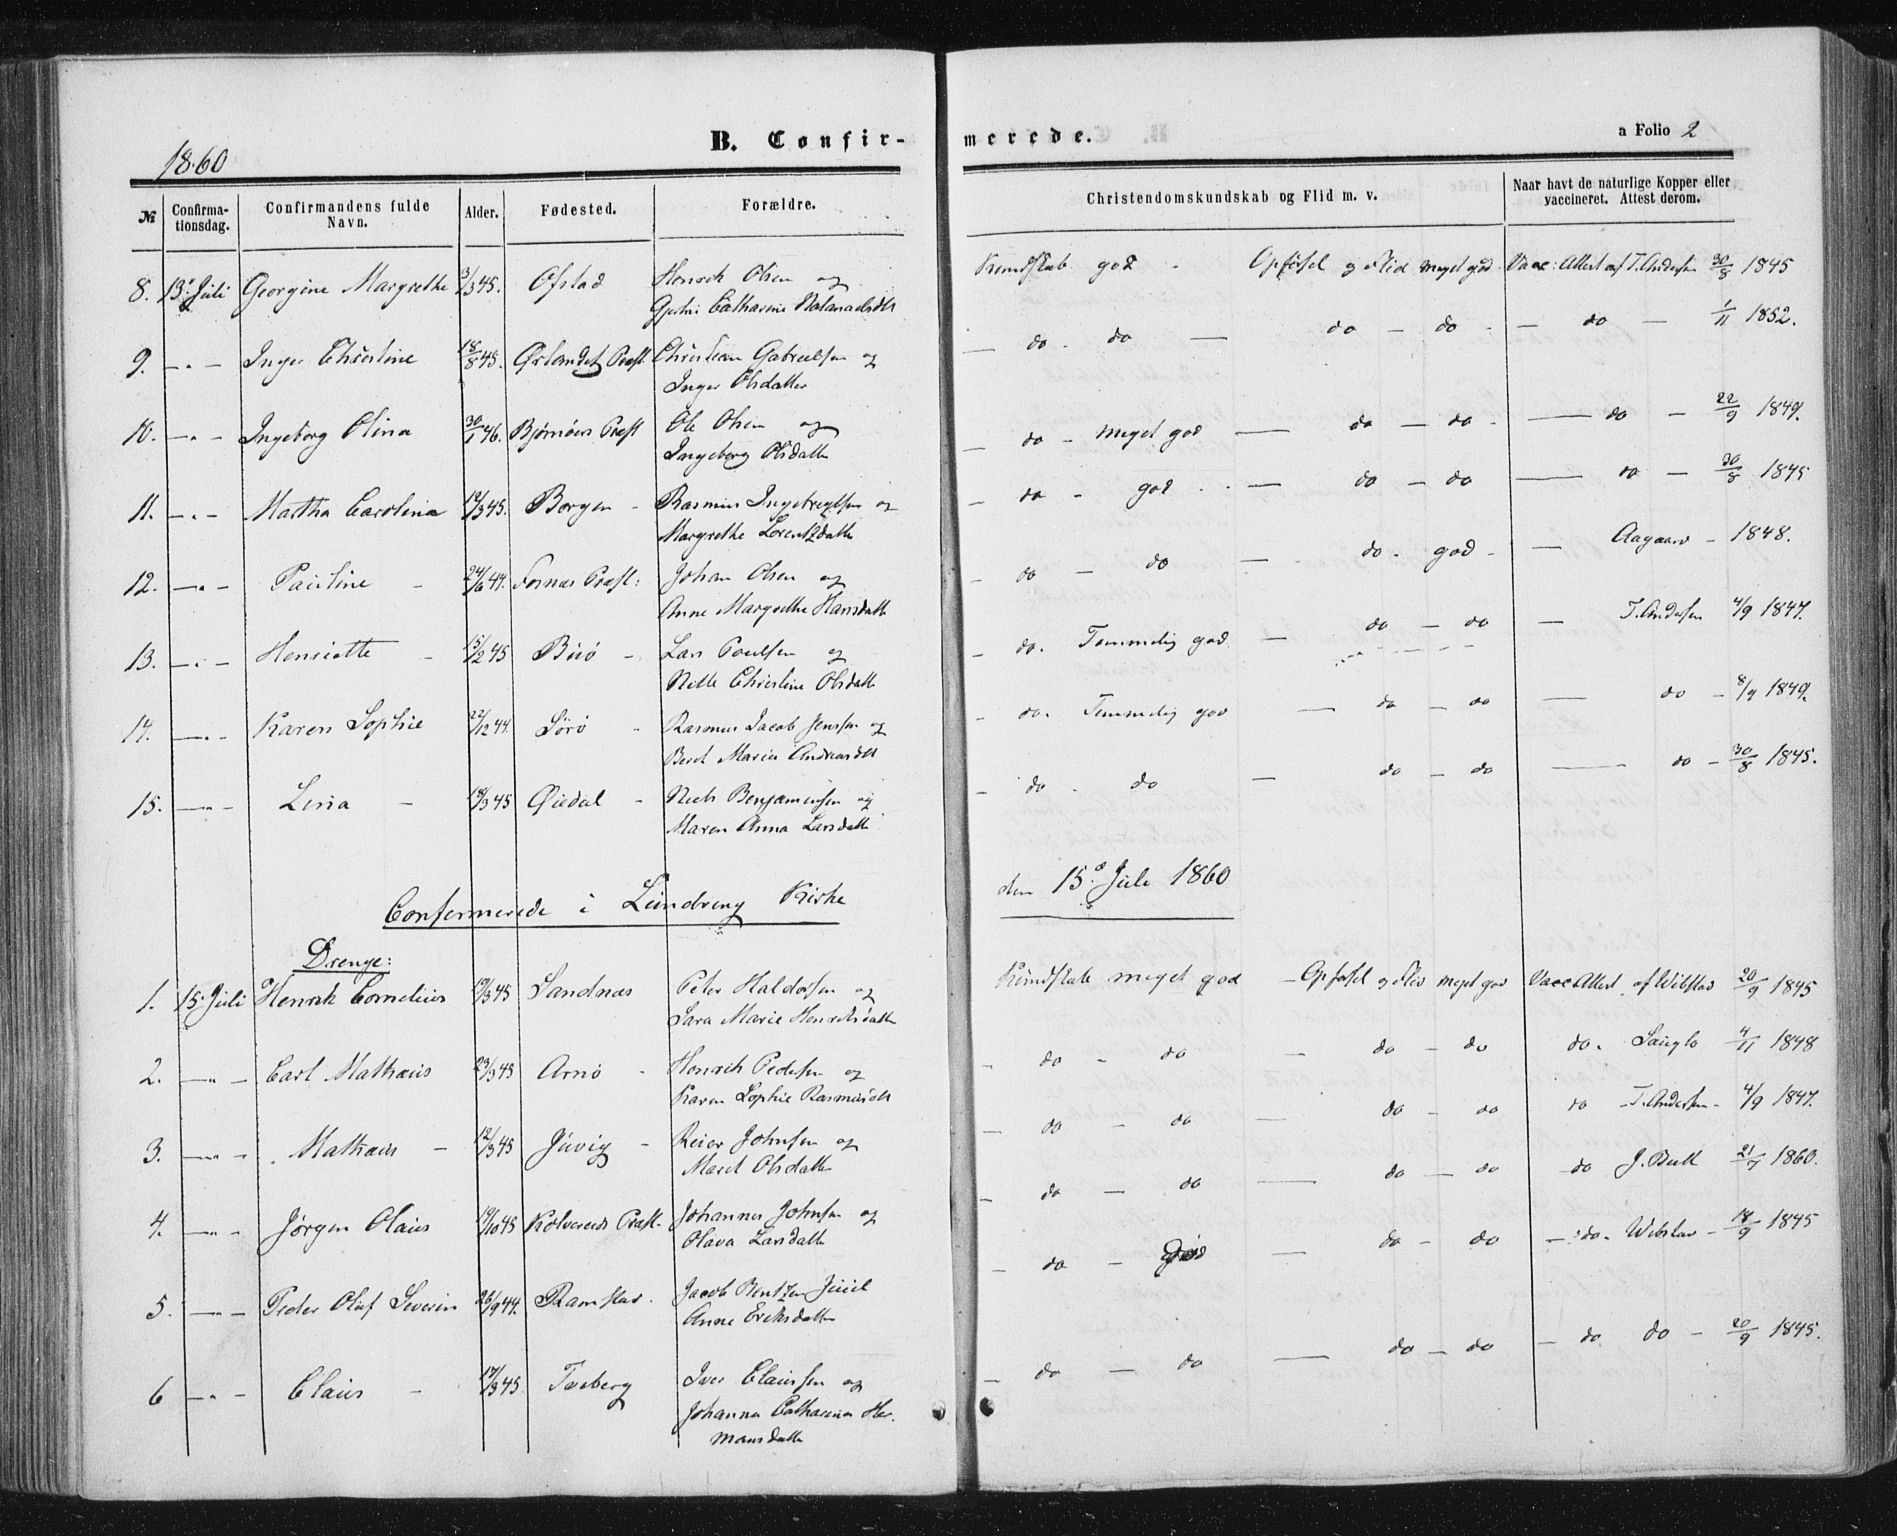 1860
B. Confirmerede.
a Folio 2
№ Confirmationsdag. Confirmandens fulde Navn. Alder. Fødested. Forældre. Christendomskundskab og Flid m. v. Naar havt de naturlige Kopper eller vaccineret. Attest derom.
8. 13 Juli Georgine Margrethe 3/3 45. Ofstad Henrik Olsen og Kundskab god - Opførsel og Flid meget god Vacc: Attest af T. Andersen 30/8 1845
Catharine
9. - " - Inger Christine 18/8 45. Ørlandet Præst Christian Gabrielsen og - do - do - do - do - do - 1/11 1852.
Inger Olsdatter
10. - " - Ingeborg Olina 30/1 46. Bjørnøers Præst Ole Olsen og - do - meget god - do - do - do - 22/9 1849.
Ingeborg Olsdatt
11. - " - Martha Carolina 12/3 45. Borgen - Rasmus og - do - god - do - do - do - 30/8 1845
Margrethe Lorentzdatt
12. - " - Pauline - 24/6 44. Fosnæs Præst: Johan Olsen og - do - do - do - god - Aagaard - 1848.
Anne Margrethe Hansdatt
13. - " - Henriette - 15/2 45 - Lars Poulsen og - do. Temmelig god - do - do - T. Andersen 4/9 1847.
Christine Olsdatt
14. - " - Karen Sophie 22/12 44. Sørø - Rasmus Jacob Jensen og - do. Temmelig god - do - do - do - 8/9 1849.
Beret Maria Andreasdtt
15. - " - Lina - 18/3 45 Øiedal - Niels Benjaminsen og - do - do - do - do - do - 30/8 1845.
Maren Anna Larsdatt
Confirmerede i Lundreng Kirke den 15d Juli 1860
Drenge:
1. 15 Juli Henrik Cornelius 19/3 45 Sandnæs Peter Haldorsen og Kundskab meget god - Opførsel og Flid meget god Vacc Attest af Wibstad 20/9 1845
Sara Marie Henriksdatt
2. - " - Carl Mathæus 23/3 45 Arnø - Henrik Pedersen og - do - do - do - do do. 4/11 1848
Karen Sophie Rasmusdtt
3. - " - Mathæus - 12/3 45 Juvig - Reier Johnsen og - do - do - do - do do - T. Andersen - 4/9 1847.
Maret Olsdatte
4. - " - Jørgen Olaus 19/10 45 Kolvereids Præst. Johannes Johnsen og - do - do - do - do do J. Bull 21/7 1860.
Olava Larsdatt
5. - " - Peder Oluf Severin 26/9 44. Ramstad. Jacob Bentzen Juul - do - God - do - do - do. Wibstad - 18/9 1845
Anne Eriksdatte
6 - " - Claus - 17/3 45. Faeberg Iver Claussen og - do - do - do - do - do do - 20/9 1845.
Johanna Catharina Her-
mansdatt